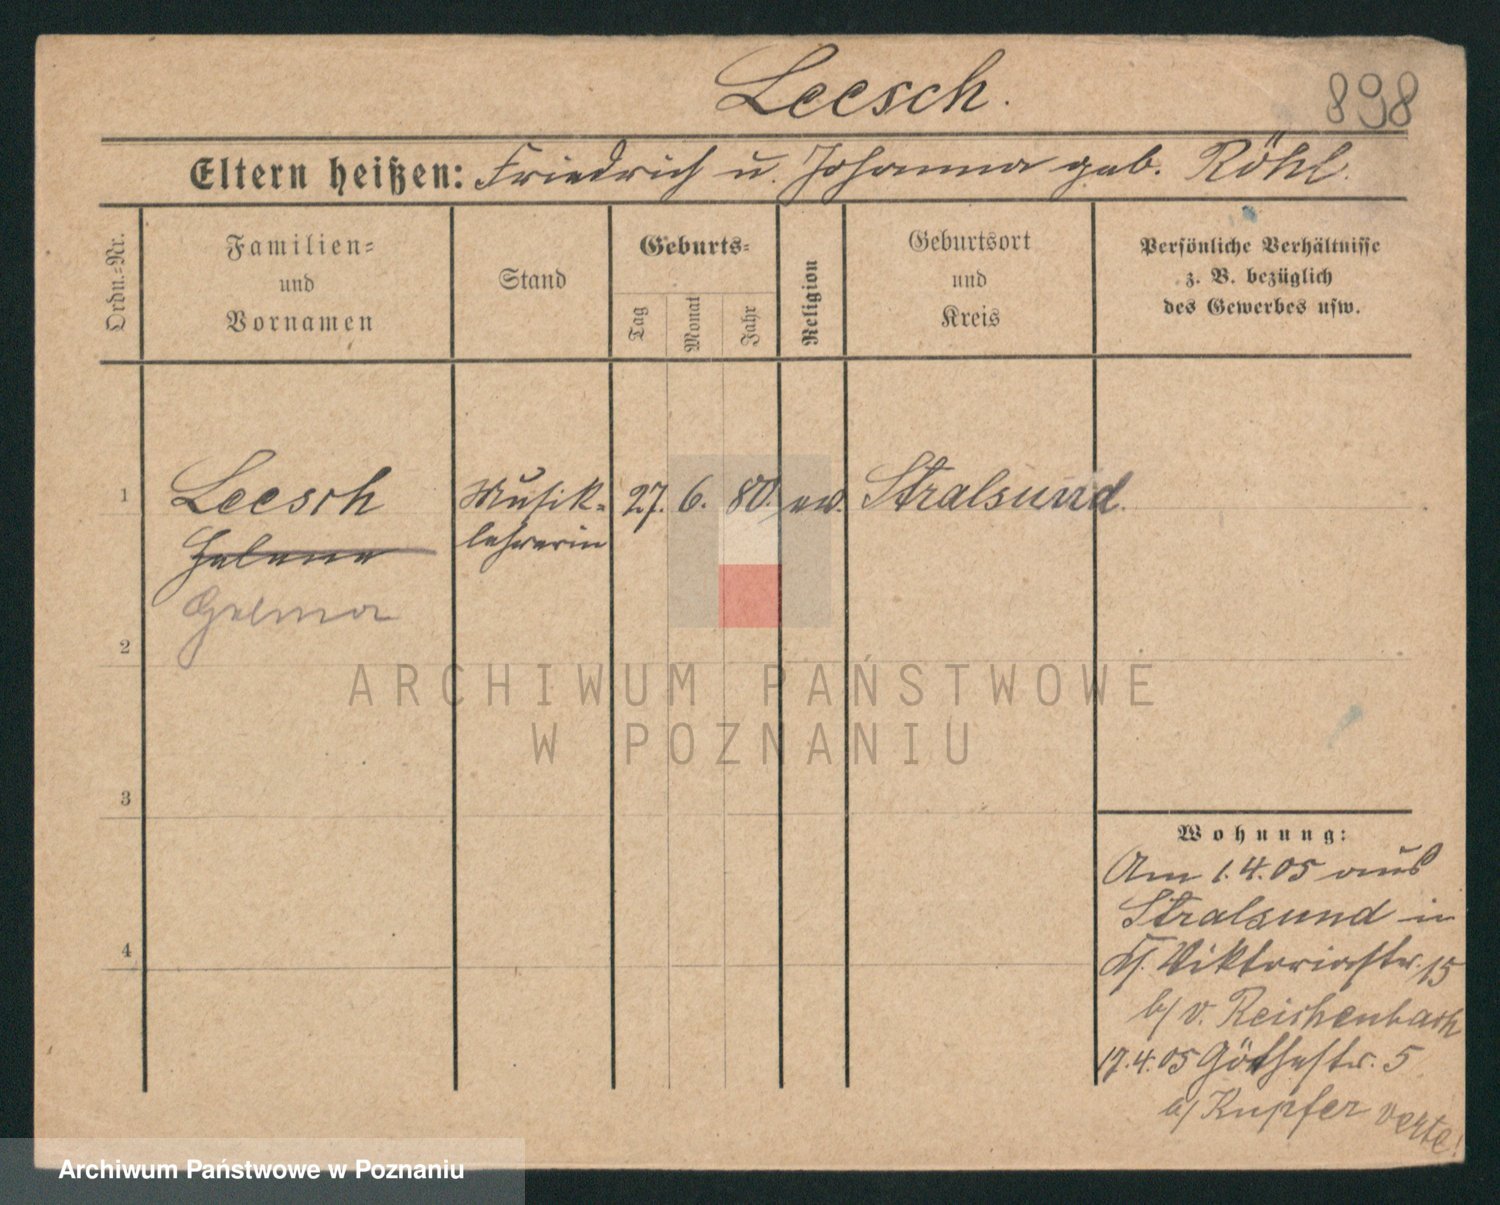 Leesch.
898
Eltern heißen: Friedrich u. Johanna geb. Röhl.
Ordn.-Nr.
Familien-
und
Vornamen
Stand
Geburts-
Tag
Monat
Jahr
Religion
Geburtsort
und
Kreis
Persönliche Verhältnisse
z. B. bezüglich
des Gewerbes usw.
1
Leesch
Helene
Musik-
lehrerin
27. 6. 80. ev. Stralsund.
2
3
4
Wohnung:
Am 1.4.05 aus
Stralsund in
Viktoriastr. 15
b/ v. Reichenbach
17.4.05 Göthestr. 5
b/ Kupfer verte!
ARCHIWUM PAŃSTWOWE
W POZNANIU
Archiwum Państwowe w Poznaniu